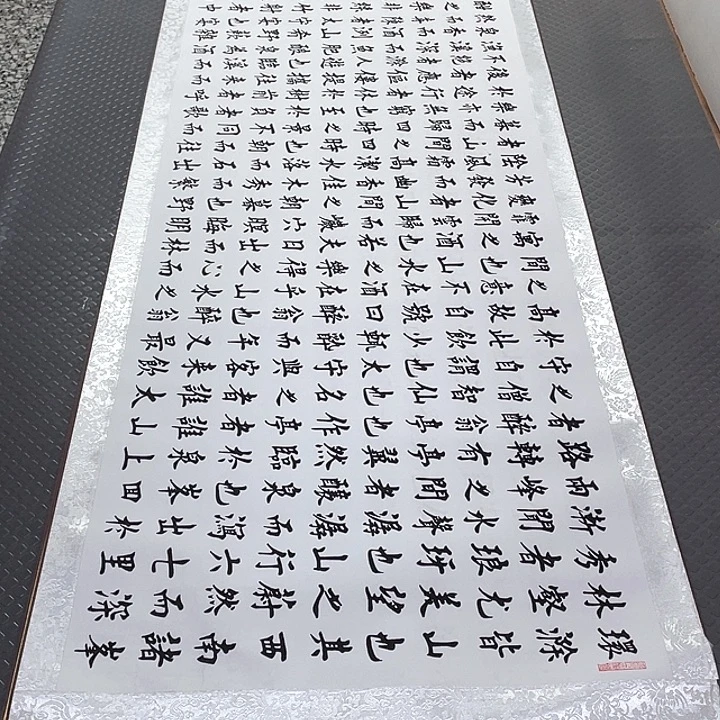 環滁皆山也其西南諸峯
林壑尤美望之蔚然而深
秀者琅玡也山行六七里
漸聞水聲潺潺而瀉出扵
兩峰之間者釀泉也峯回
路轉有亭翼然臨扵泉上
者醉翁亭也作亭者誰山
之僧智仙也名之者誰太
守自謂也太守與客來飲
扵此飲少輒醉而年又最
高故自號曰醉翁也醉翁
之意不在酒在乎山水之
間也山水之樂得之心而
寓之酒也若夫日出而林
霏開雲歸而巖穴暝晦明
變化者山間之朝暮也野
芳發而幽香佳木秀而繁
陰風霜高潔水落而石出
者山間之四時也朝而往
暮而歸四時之景不同而
樂亦無窮也至於負者歌
於途行者休於樹前者呼
後者應傴僂提攜往來而
不絕者滁人遊也臨溪而
漁溪深而魚肥釀泉為酒
泉香而酒洌山肴野蔌雜
然而前陳者太守宴也宴
酣之樂非絲非竹射者中